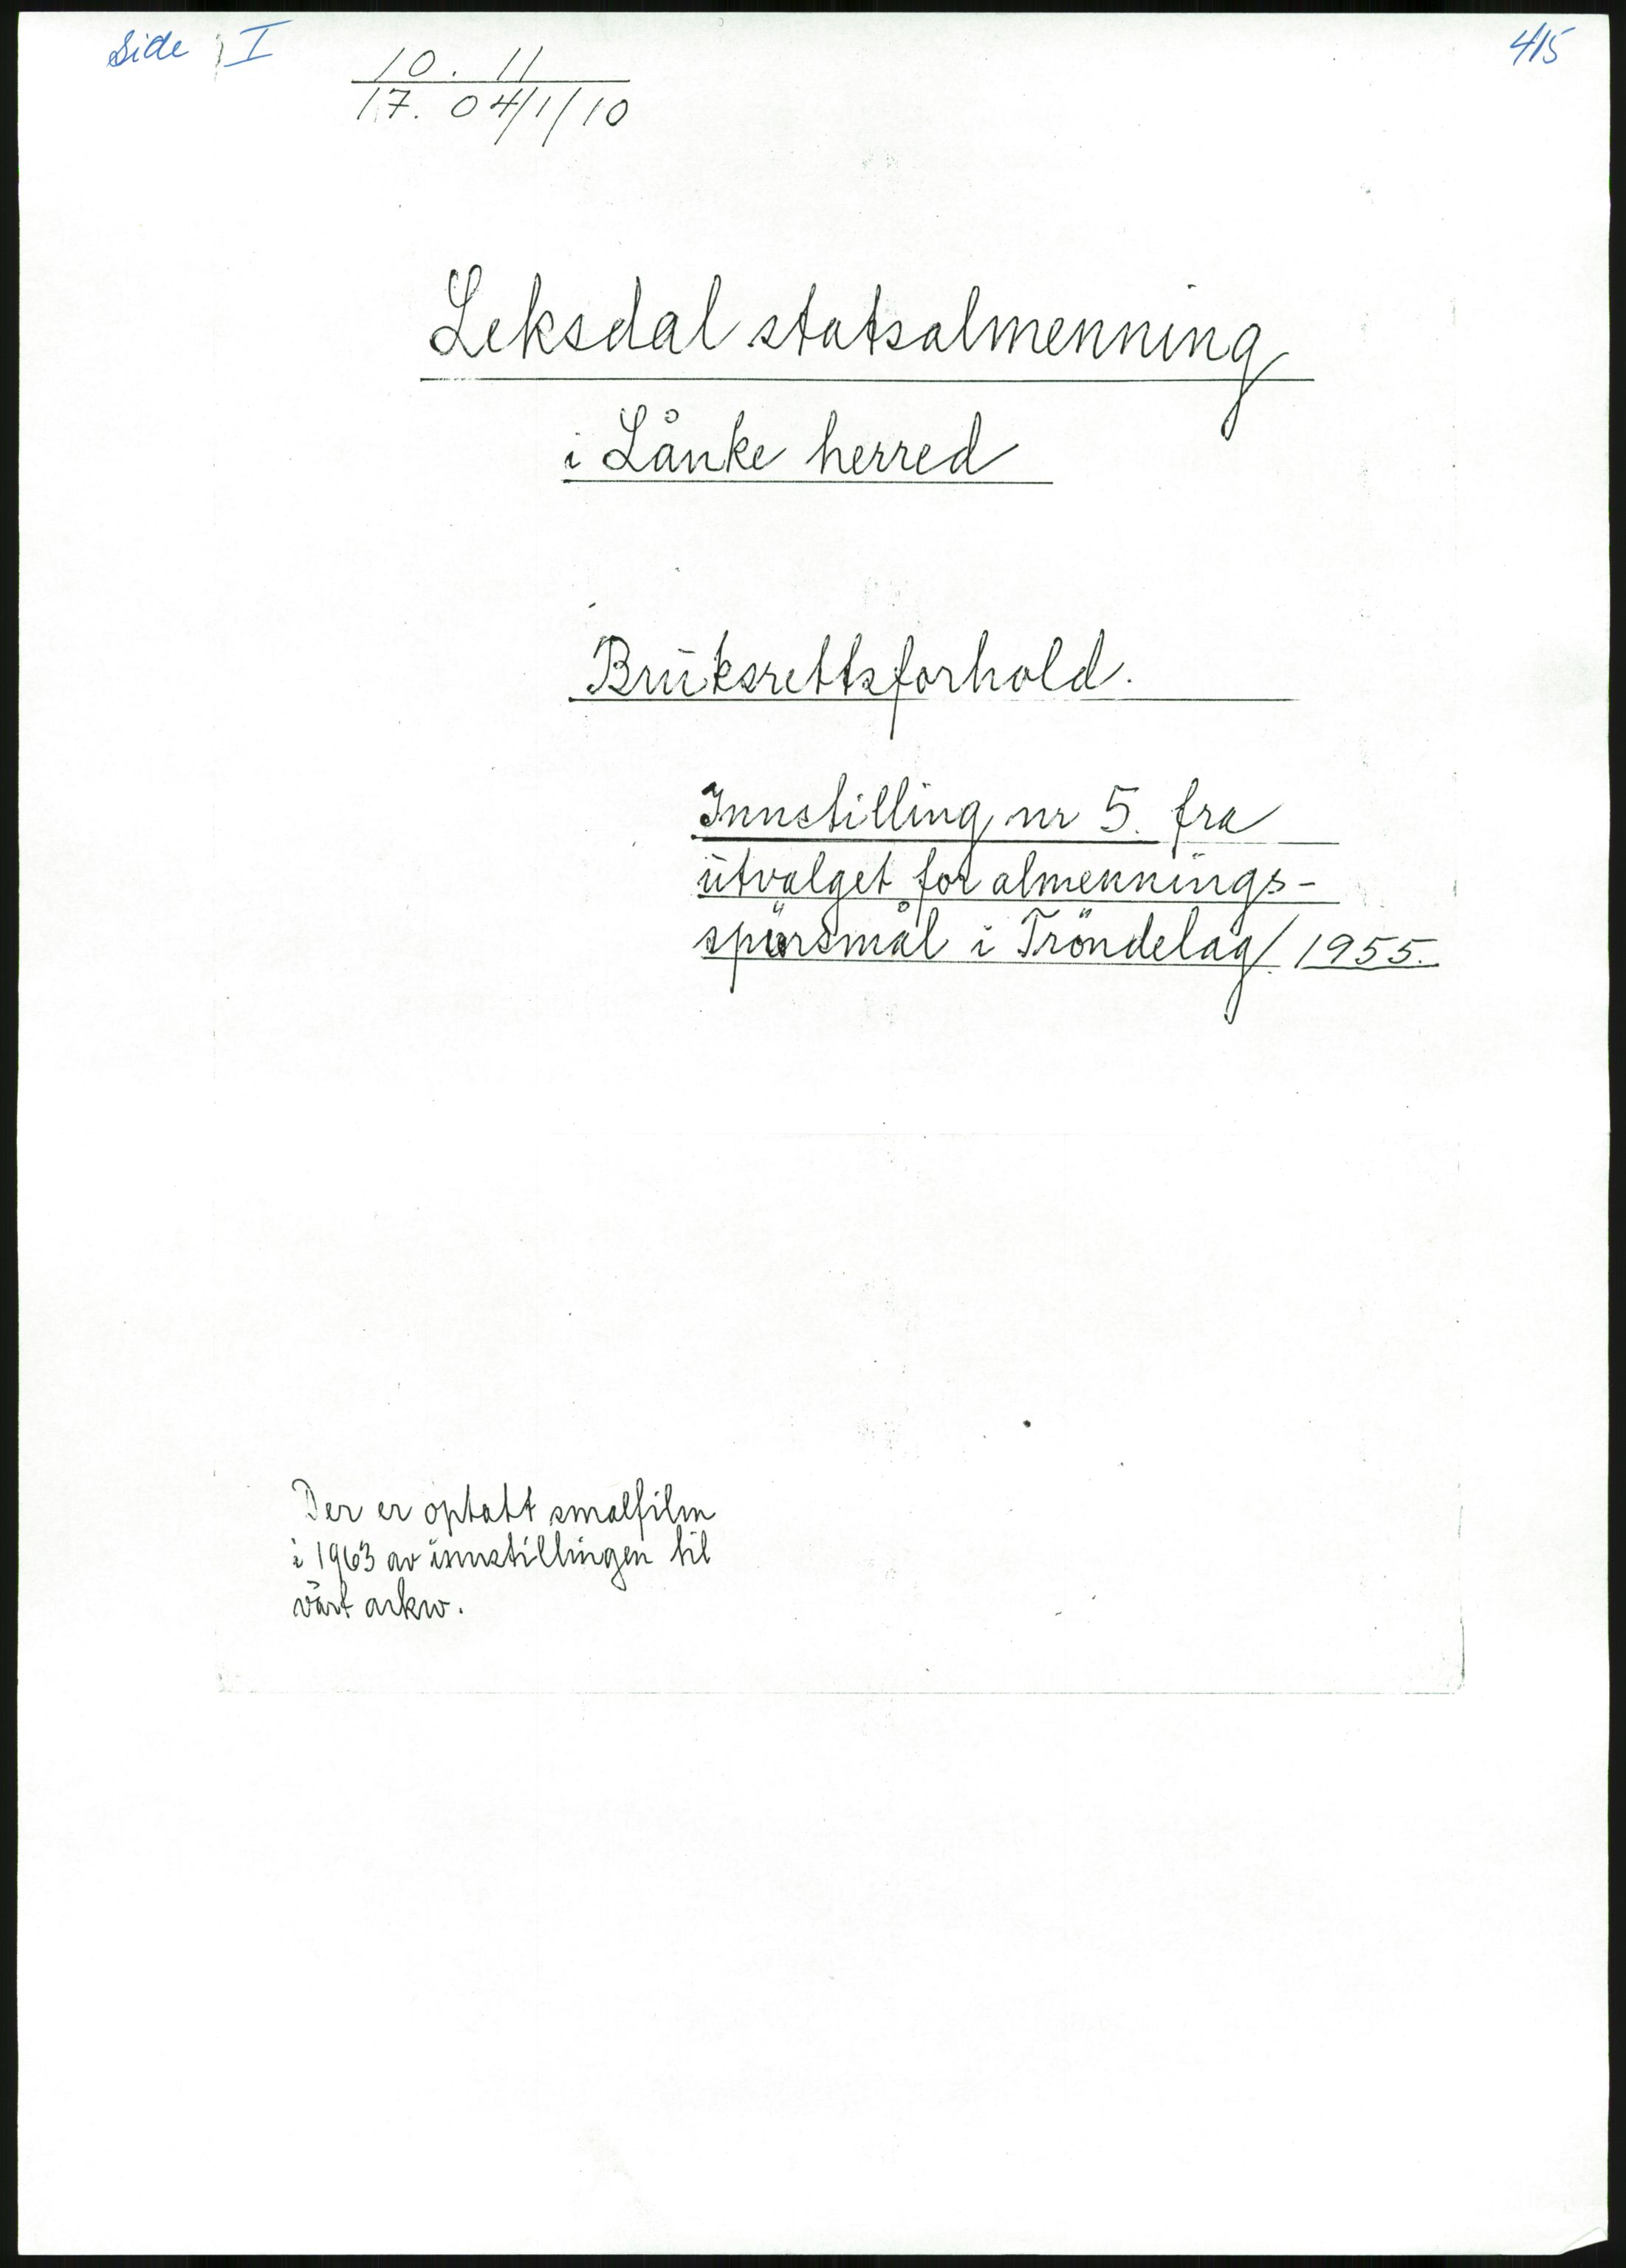 Side I
415
10. 11
17. 04/1/10
Leksdal statsalmenning
i Lånke herred
Bruksrettsforhold.
Innstilling nr 5. fra
utvalget for almennings-
spörsmål i Tröndelag/1955.
Der er optatt smalfilm
i 1963 av innstillingen til
vårt arkiv.